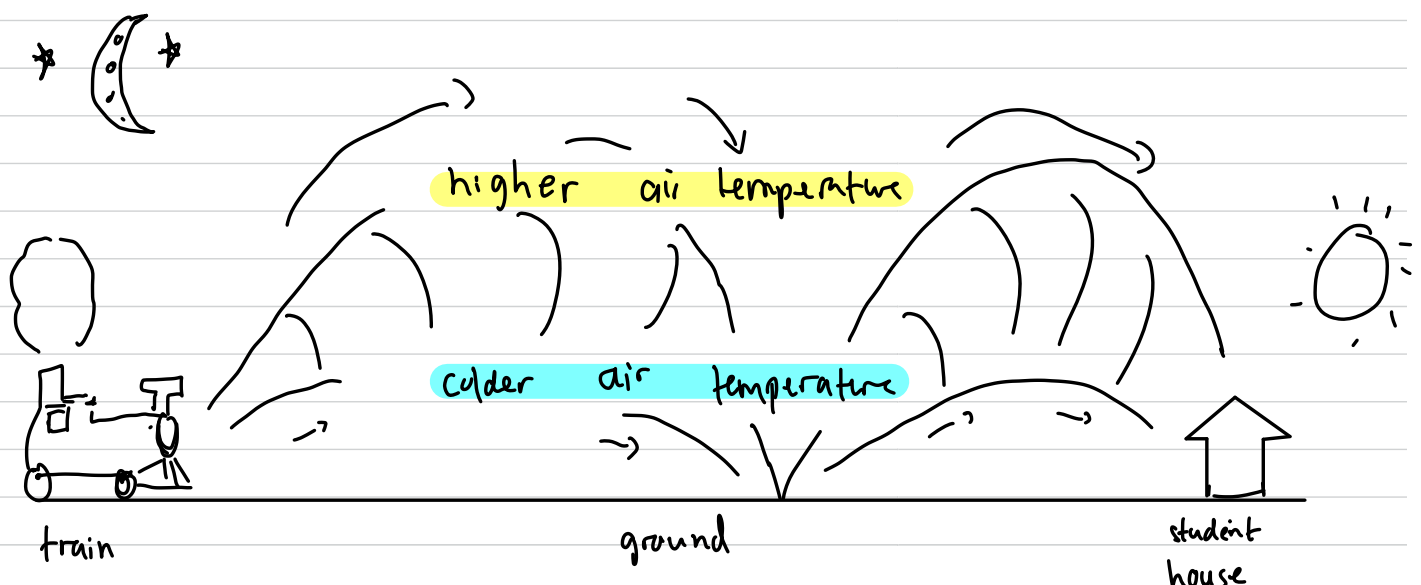 higher air temperature
colder air temperature
train
ground
student
house